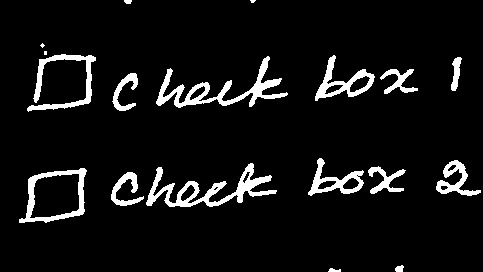 ☐ Check box 1
☐ Check box 2